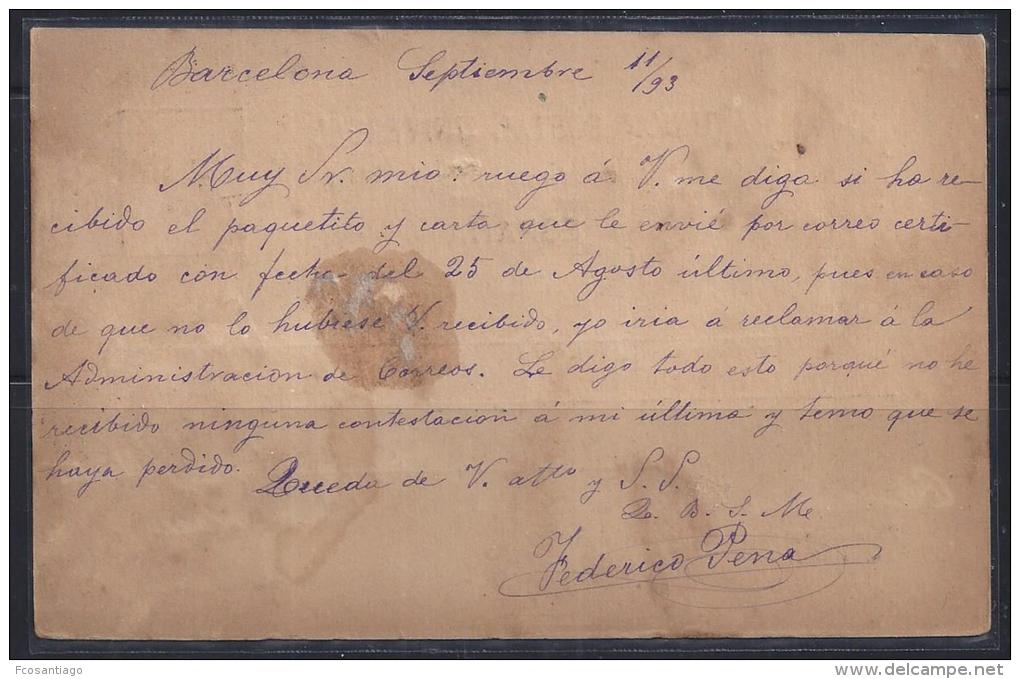 Barcelona Septiembre 11/93
Muy Sr. mio: ruego á V. me diga si ha re-
cibido el paquetito y carta que le envié por correo certi-
ficado con fecha del 25 de Agosto último, pues en caso
de que no lo hubiese V. recibido, yo iria á reclamar á la
Administracion de Correos. Le digo todo esto porqué no he
recibido ninguna contestacion á mi última y temo que se
haya perdido.
Queda de V. atto y S. S.
Q. B. S. M.
Federico Pena
Fcosantiago
www.delcampe.net